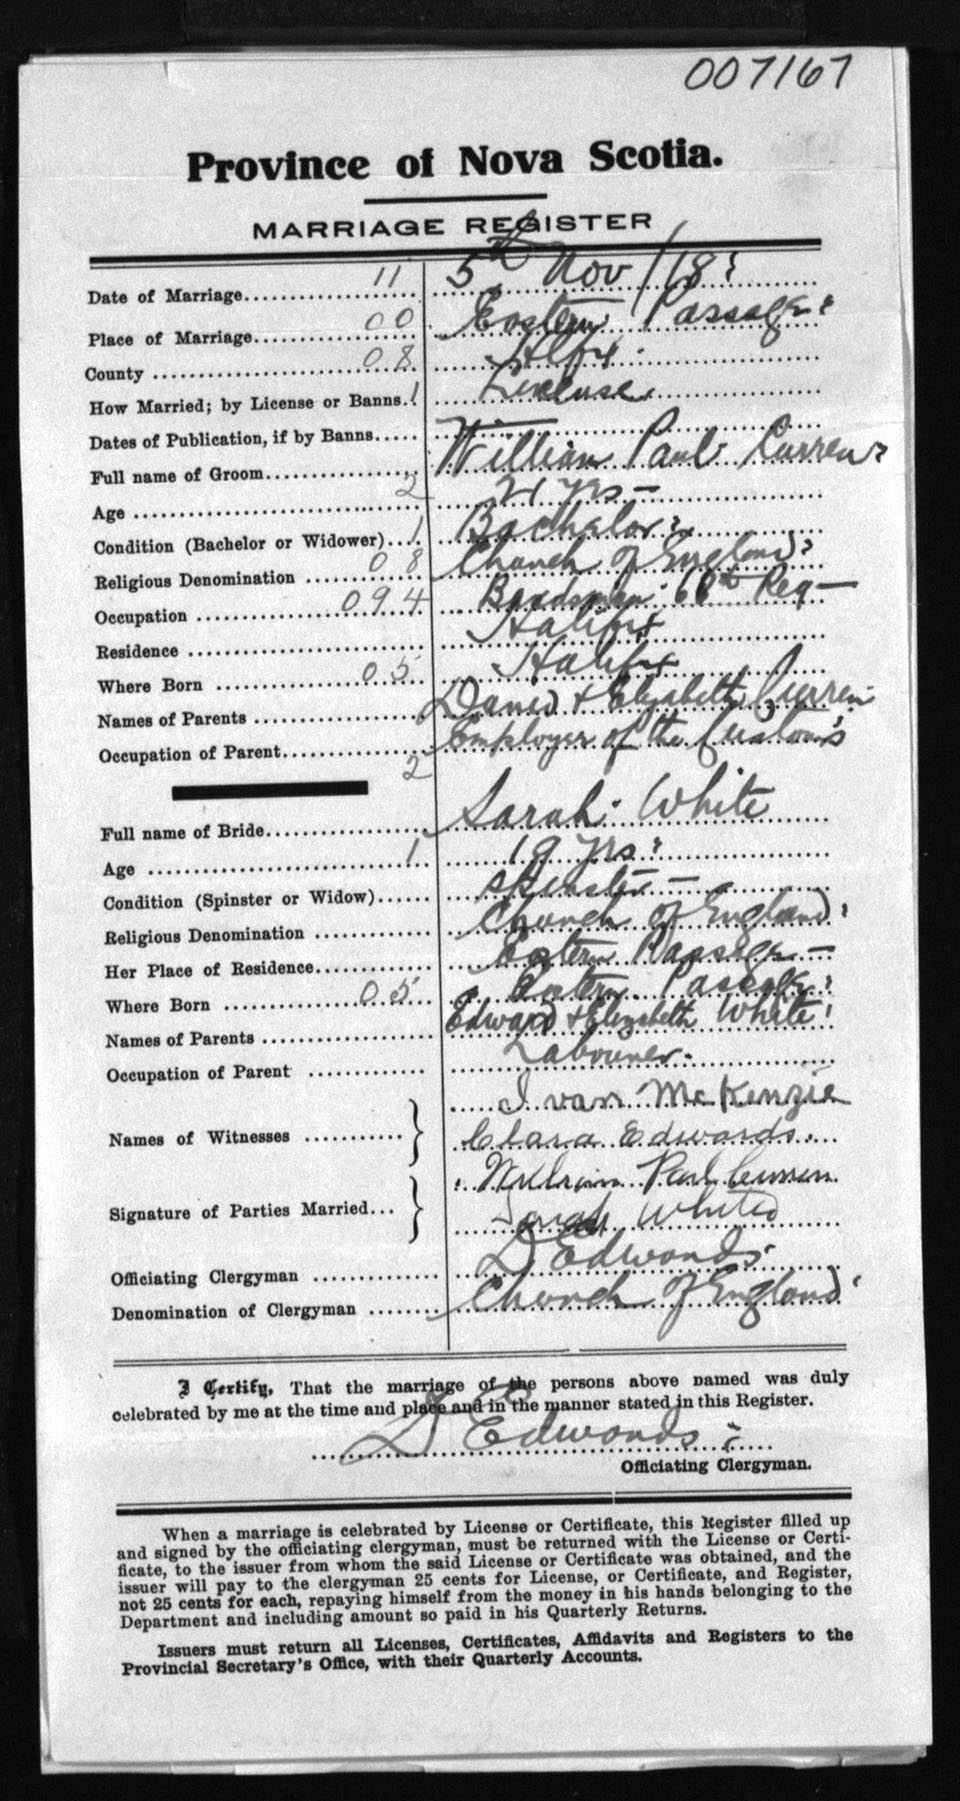 007167
Province of Nova Scotia.
MARRIAGE REGISTER
Date of Marriage 11 5th Nov /18
Place of Marriage 00 Eastern Passage
County 08 Hlfx
How Married; by License or Banns 1 License
Dates of Publication, if by Banns
Full name of Groom William Paul Curren
Age 2 21 yrs
Condition (Bachelor or Widower) 1 Bachelor
Religious Denomination 08 Church of England
Occupation 094 Bandsman 66th Reg
Residence Halifx
Where Born 05 Halifx
Names of Parents & Elizabeth Curren
Occupation of Parent Employer of the Customs
2
Full name of Bride Sarah White
Age 1 19 yrs
Condition (Spinster or Widow) Spinster
Religious Denomination Church of England
Her Place of Residence Eastern Passage
Where Born 05 Eastern Passage
Names of Parents Edward & Elizabeth White
Occupation of Parent Labourer
Names of Witnesses Ivan McKenzie
Clara Edwards
Signature of Parties Married William Paul Curren
Sarah White
Officiating Clergyman D Edwards
Denomination of Clergyman Church of England
I Certify, That the marriage of the persons above named was duly
celebrated by me at the time and place and in the manner stated in this Register.
D Edwards
Officiating Clergyman.
When a marriage is celebrated by License or Certificate, this Register filled up
and signed by the officiating clergyman, must be returned with the License or Certi-
ficate, to the issuer from whom the said License or Certificate was obtained, and the
issuer will pay to the clergyman 25 cents for License, or Certificate, and Register,
not 25 cents for each, repaying himself from the money in his hands belonging to the
Department and including amount so paid in his Quarterly Returns.
Issuers must return all Licenses, Certificates, Affidavits and Registers to the
Provincial Secretary's Office, with their Quarterly Accounts.